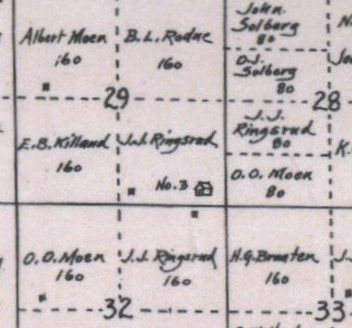 John
Solberg
80
Albert Moen
160
B. L. Rodne
160
O.J.
Solberg
80
29
28
E.B. Killand
160
J.J. Ringsrud
J.J.
Ringsrud
80
No. 3
O.O. Moen
80
O.O. Moen
160
J.J. Ringsrud
160
H.G. Braaten
160
32
33